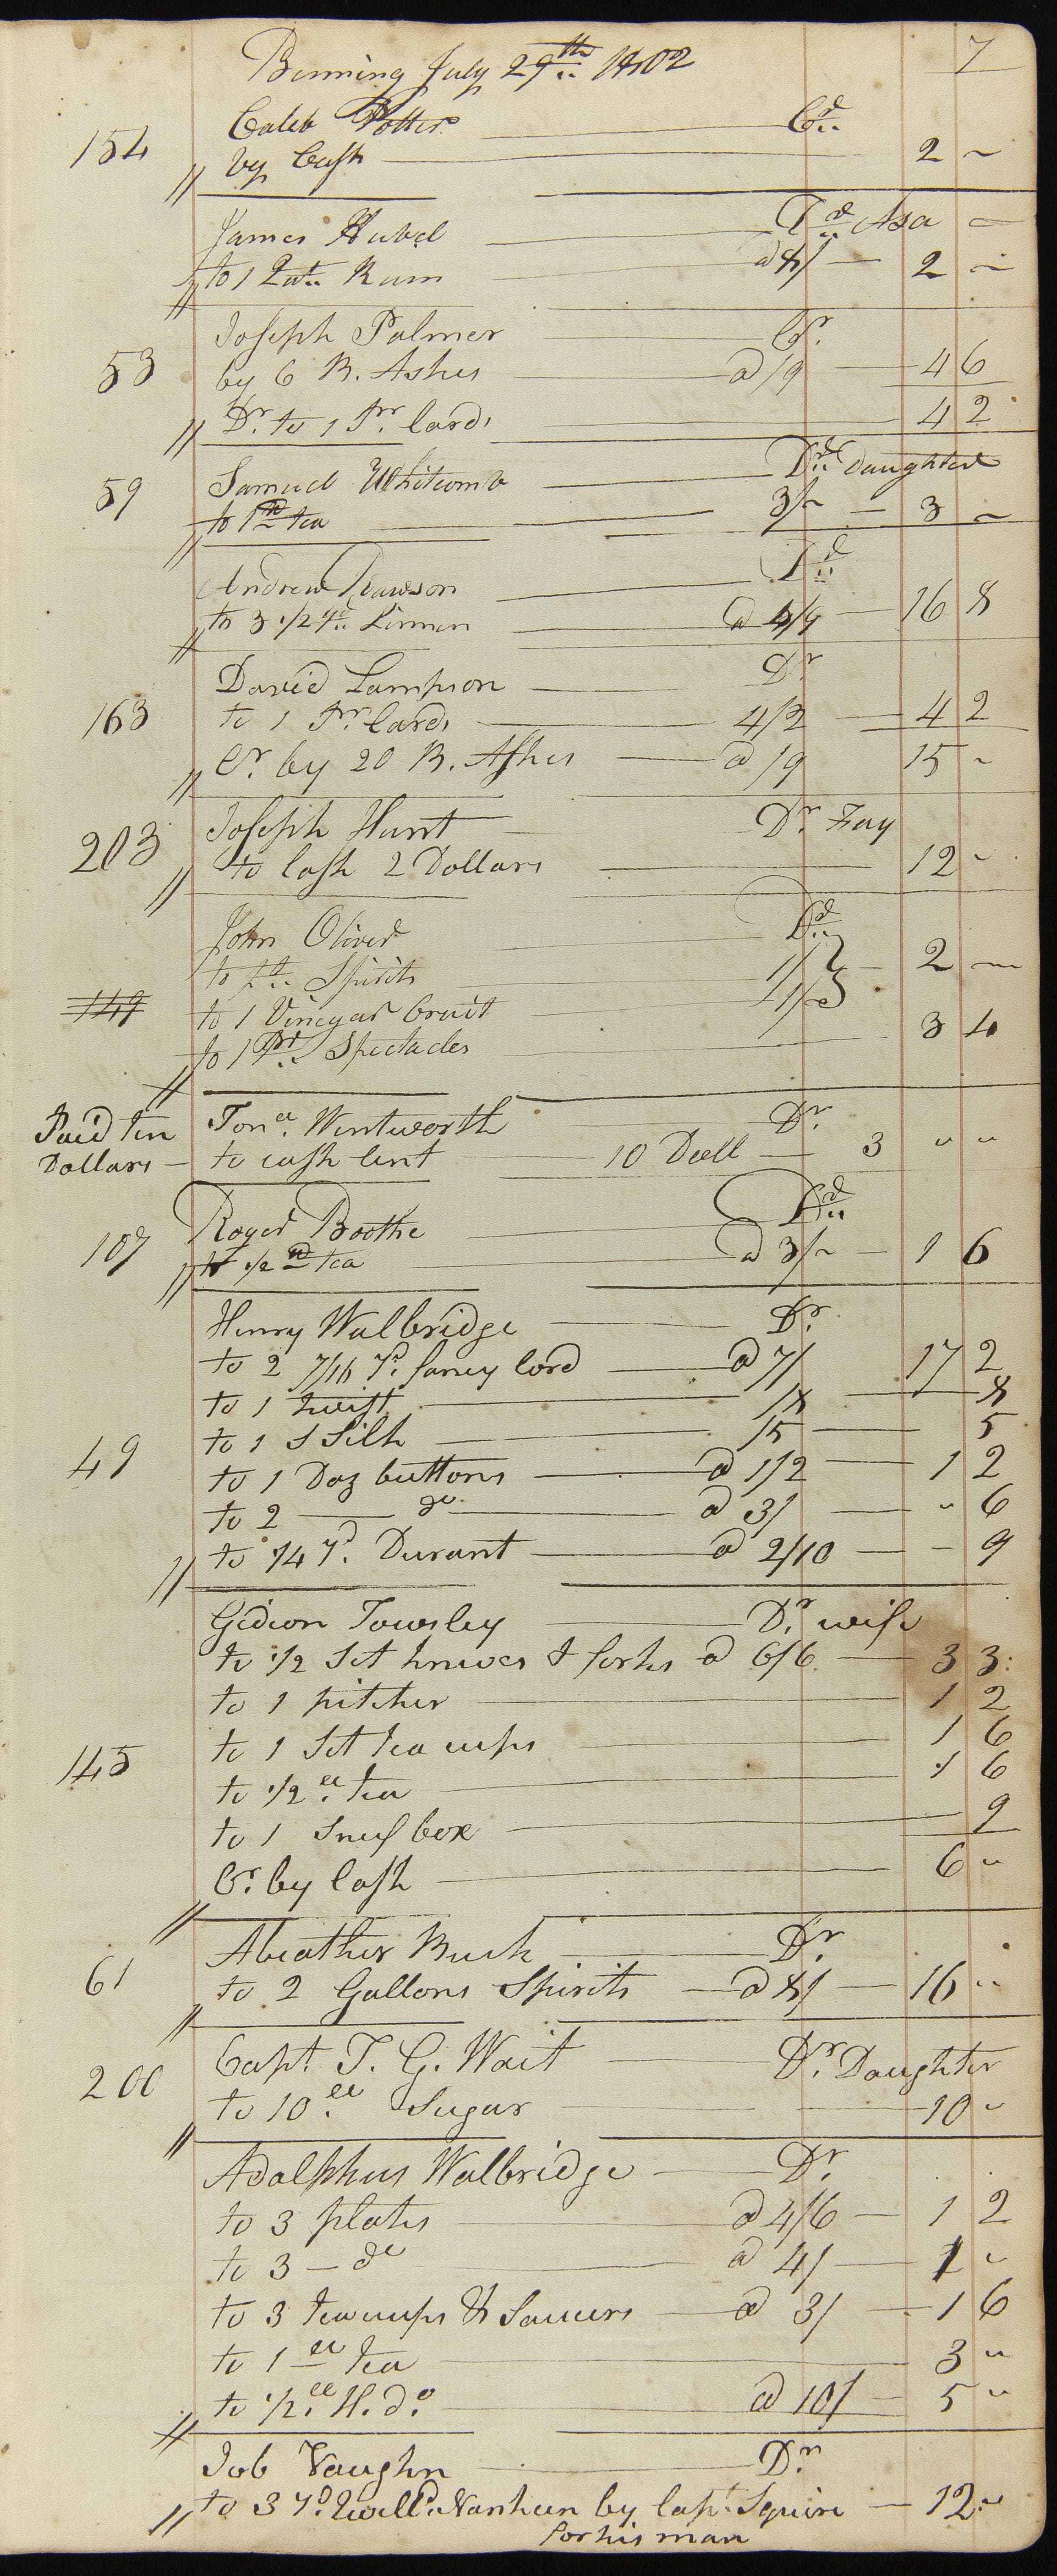 7
Benning July 29th 1802
Caleb Potter Cr
154 by Cash 2 ~
James Hubel Dr Asa
to 1 Qat. Rum @ 8/ 2 ~
Joseph Palmer Cr.
53 by 6 B. Ashes @ /9 4 6
Dr. to 1 Pr. Cards 4 2
Samuel Whitcomb Dr Daughter
59 to 1 lb tea 3/~ 3 ~
Andrew Dawson Dr
to 3 1/2 yd Linnen @ 4/9 16 8
David Lampson Dr
163 to 1 Pr. Cards 4/2 4 2
Cr. by 20 B. Ashes @ /9 15 ~
203 Joseph Hunt Dr. Fay
to Cash 2 Dollars 12 ~
John Oliver Dr
to pt. Spirits 1/ 2 ~
149 to 1 Vinegar Cruit 1/~
to 1 Pr Spectacles 3 4
Paid ten Jona. Wentworth Dr.
Dollars to cash lent 10 Doll 3 " "
Roger Boothe Dr
107 to 1/2 lb tea @ 3/~ 1 6
Henry Walbridge Dr.
to 2 7/16 Yd. fancy Cord @ 7/ 17 2
to 1 twist /8 8
to 1 S Silk /5 5
49 to 1 Doz buttons @ 1/2 1 2
to 2 do @ 3/ " 6
to 1/4 Yd. Durant @ 2/10 - 9
Gideon Towsley Dr. wife
to 1/2 Set knives & forks @ 6/6 3 3
to 1 pitcher 1 2
to 1 Set tea cups 1 6
145 to 1/2 lb. tea 1 6
to 1 Snuf box 9
Cr. by Cash 6 "
Abiather Buck Dr.
61 to 2 Gallons Spirits @ 8/ 16 "
Capt. T. G. Wait Dr. Daughter
200 to 10 lb. Sugar 10 "
Adolphus Walbridge Dr.
to 3 plates @ 4/6 1 2
to 3 - do @ 4/ 1 "
to 3 teacups & Saucers @ 3/ 1 6
to 1 lb tea 3 "
to 1/2 lb. H. do. @ 10/ 5 "
Job Vaughn Dr.
to 3 Yd. Nankeen by Capt. Squire 12 "
for his man